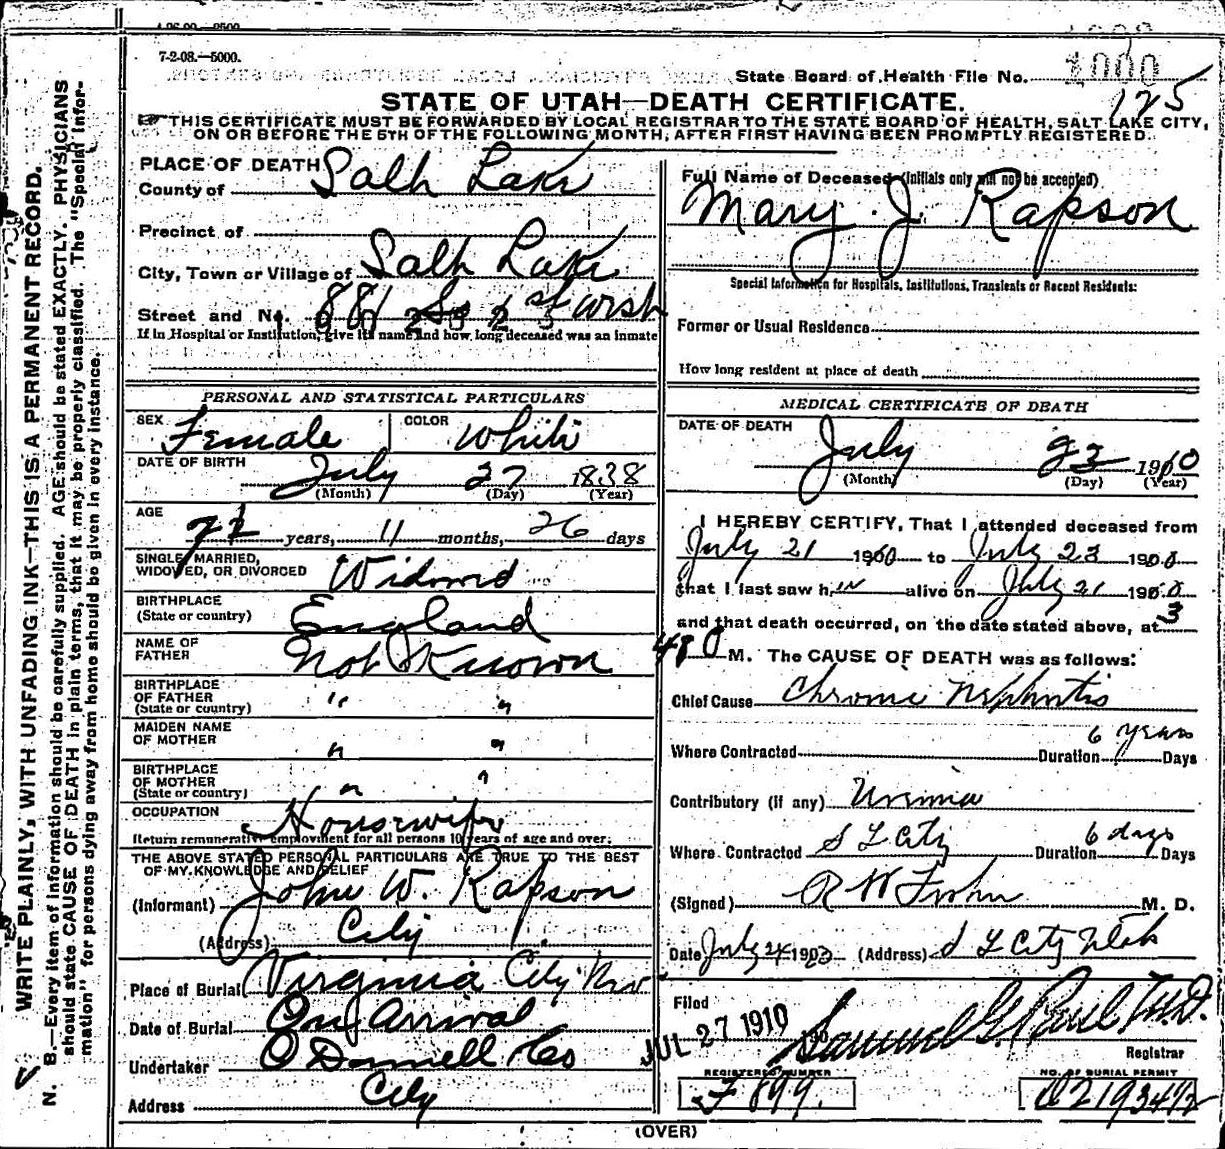 7-2-08.—5000.
State Board of Health File No. 1000
125
STATE OF UTAH—DEATH CERTIFICATE.
THIS CERTIFICATE MUST BE FORWARDED BY LOCAL REGISTRAR TO THE STATE BOARD OF HEALTH, SALT LAKE CITY,
ON OR BEFORE THE 5TH OF THE FOLLOWING MONTH, AFTER FIRST HAVING BEEN PROMPTLY REGISTERED.
WRITE PLAINLY, WITH UNFADING INK—THIS IS A PERMANENT RECORD.
N. B.—Every item of information should be carefully supplied. AGE should be stated EXACTLY. PHYSICIANS
should state CAUSE OF DEATH in plain terms, that it may be properly classified. The "Special Infor-
mation" for persons dying away from home should be given in every instance.
PLACE OF DEATH
County of Salt Lake
Precinct of
City, Town or Village of Salt Lake
Street and No.
If in Hospital or Institution, give its name and how long deceased was an inmate
PERSONAL AND STATISTICAL PARTICULARS
SEX Female COLOR White
DATE OF BIRTH July 27 1838
(Month) (Day) (Year)
AGE
71 years, 11 months, 26 days
SINGLE, MARRIED,
WIDOWED, OR DIVORCED Widowed
BIRTHPLACE
(State or country) England
NAME OF
FATHER Not Known
BIRTHPLACE
OF FATHER
(State or country) " "
MAIDEN NAME
OF MOTHER " "
BIRTHPLACE
OF MOTHER
(State or country) " "
OCCUPATION Housewife
Return remunerative employment for all persons 10 years of age and over.
THE ABOVE STATED PERSONAL PARTICULARS ARE TRUE TO THE BEST
OF MY KNOWLEDGE AND BELIEF
(Informant) John W. Rapson
(Address) City
Place of Burial Virginia City Nev
Date of Burial On Arrival
Undertaker O Donnell & Co
Address City
Full Name of Deceased (Initials only will not be accepted)
Mary J Rapson
Special Information for Hospitals, Institutions, Transients or Recent Residents:
Former or Usual Residence
How long resident at place of death
MEDICAL CERTIFICATE OF DEATH
DATE OF DEATH
July 23 1910
(Month) (Day) (Year)
I HEREBY CERTIFY, That I attended deceased from
July 21 1910 to July 23 1910
that I last saw her alive on July 21 1910
and that death occurred, on the date stated above, at 3
M. The CAUSE OF DEATH was as follows:
Chief Cause Chronic Nephritis
6 years
Where Contracted Duration Days
Contributory (if any) Uremia
6 days
Where Contracted S L City Duration Days
(Signed) M. D.
Date July 24 1910 (Address) S L City Utah
Filed JUL 27 1910 Samuel G. Paul M.D.
Registrar
REGISTERED NUMBER NO. OF BURIAL PERMIT
F 899.
(OVER)